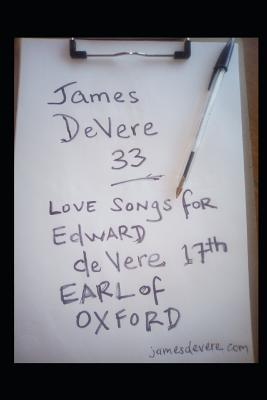 James
DeVere
33
LOVE SONGS FOR
EDWARD
de Vere 17th
EARL of
OXFORD
jamesdevere.com